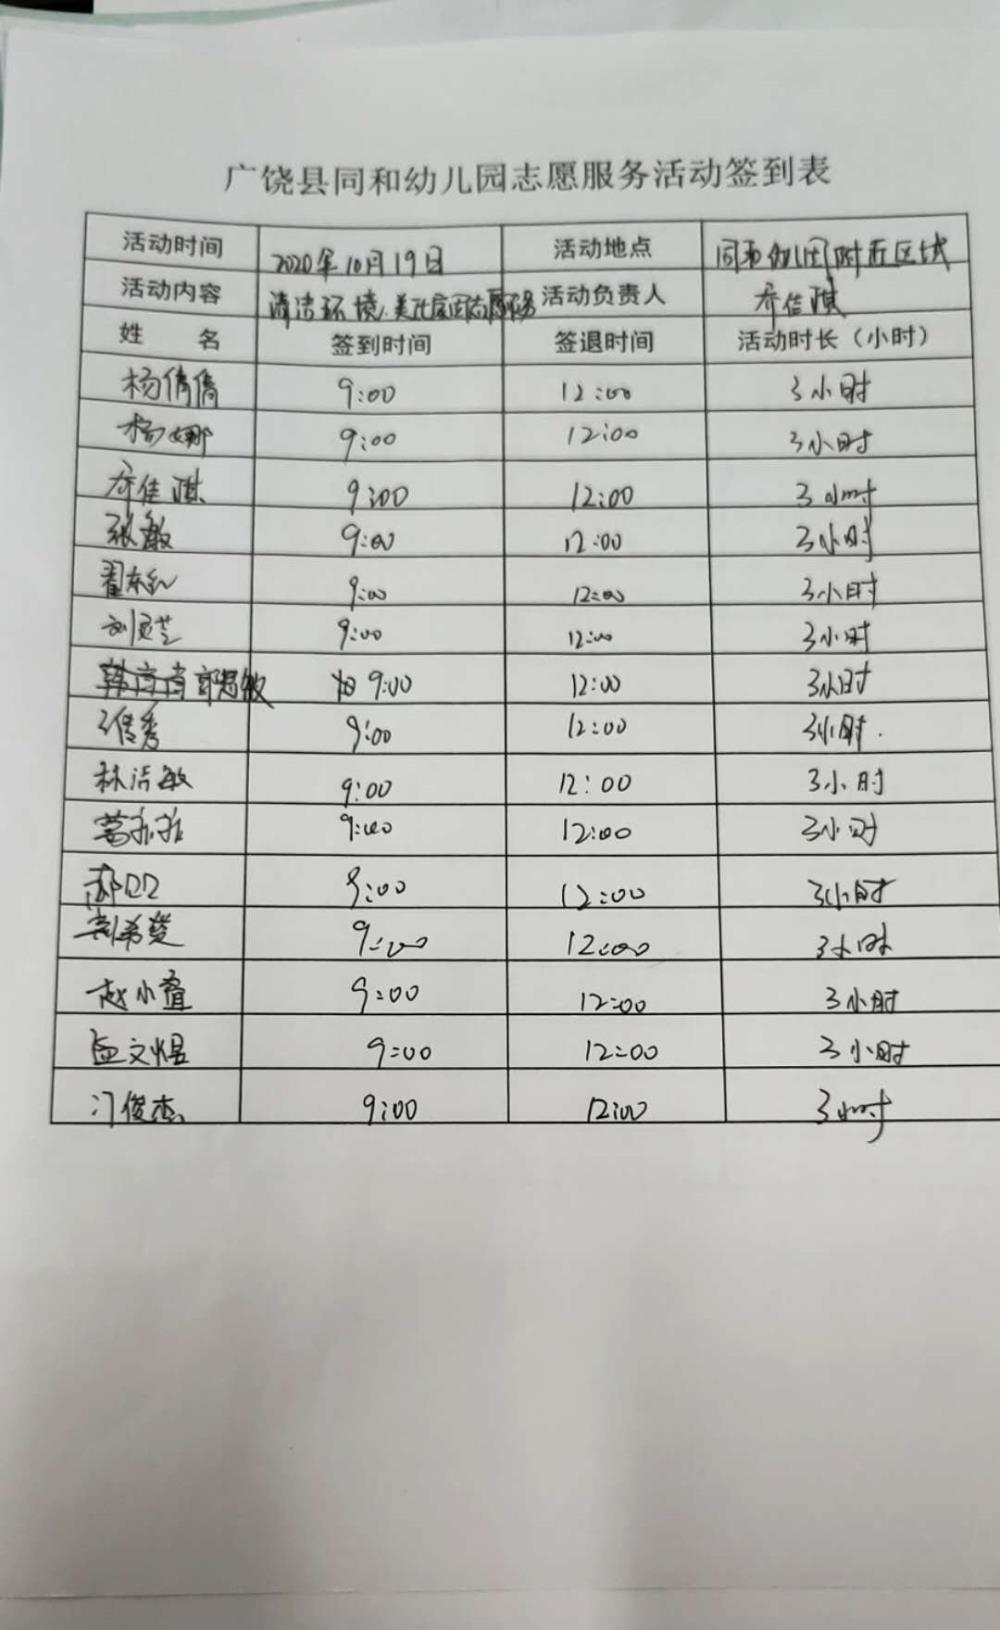 广饶县同和幼儿园志愿服务活动签到表
活动时间 2020年10月19日 活动地点 同和幼儿园附近区域
活动内容 清洁环境.美化家园志愿服务 活动负责人 乔佳琪
姓 名 签到时间 签退时间 活动时长（小时）
杨倩倩 9:00 12:00 3小时
杨娜 9:00 12:00 3小时
乔佳琪 9:00 12:00 3小时
张敏 9:00 12:00 3小时
翟东红 9:00 12:00 3小时
刘灵芝 9:00 12:00 3小时
敏 9:00 12:00 3小时
秀 9:00 12:00 3小时
林洁敏 9:00 12:00 3小时
9:00 12:00 3小时
郝 9:00 12:00 3小时
希 9:00 12:00 3小时
赵小 9:00 12:00 3小时
孟文煜 9:00 12:00 3小时
俊杰 9:00 12:00 3小时